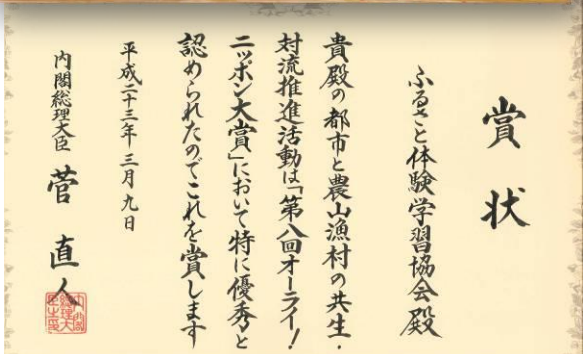 賞状
ふるさと体験学習協会殿
貴殿の都市と農山漁村の共生・
対流推進活動は「第八回オーライ！
ニッポン大賞」において特に優秀と
認められたのでこれを賞します
平成二十三年三月九日
内閣総理大臣 菅直人